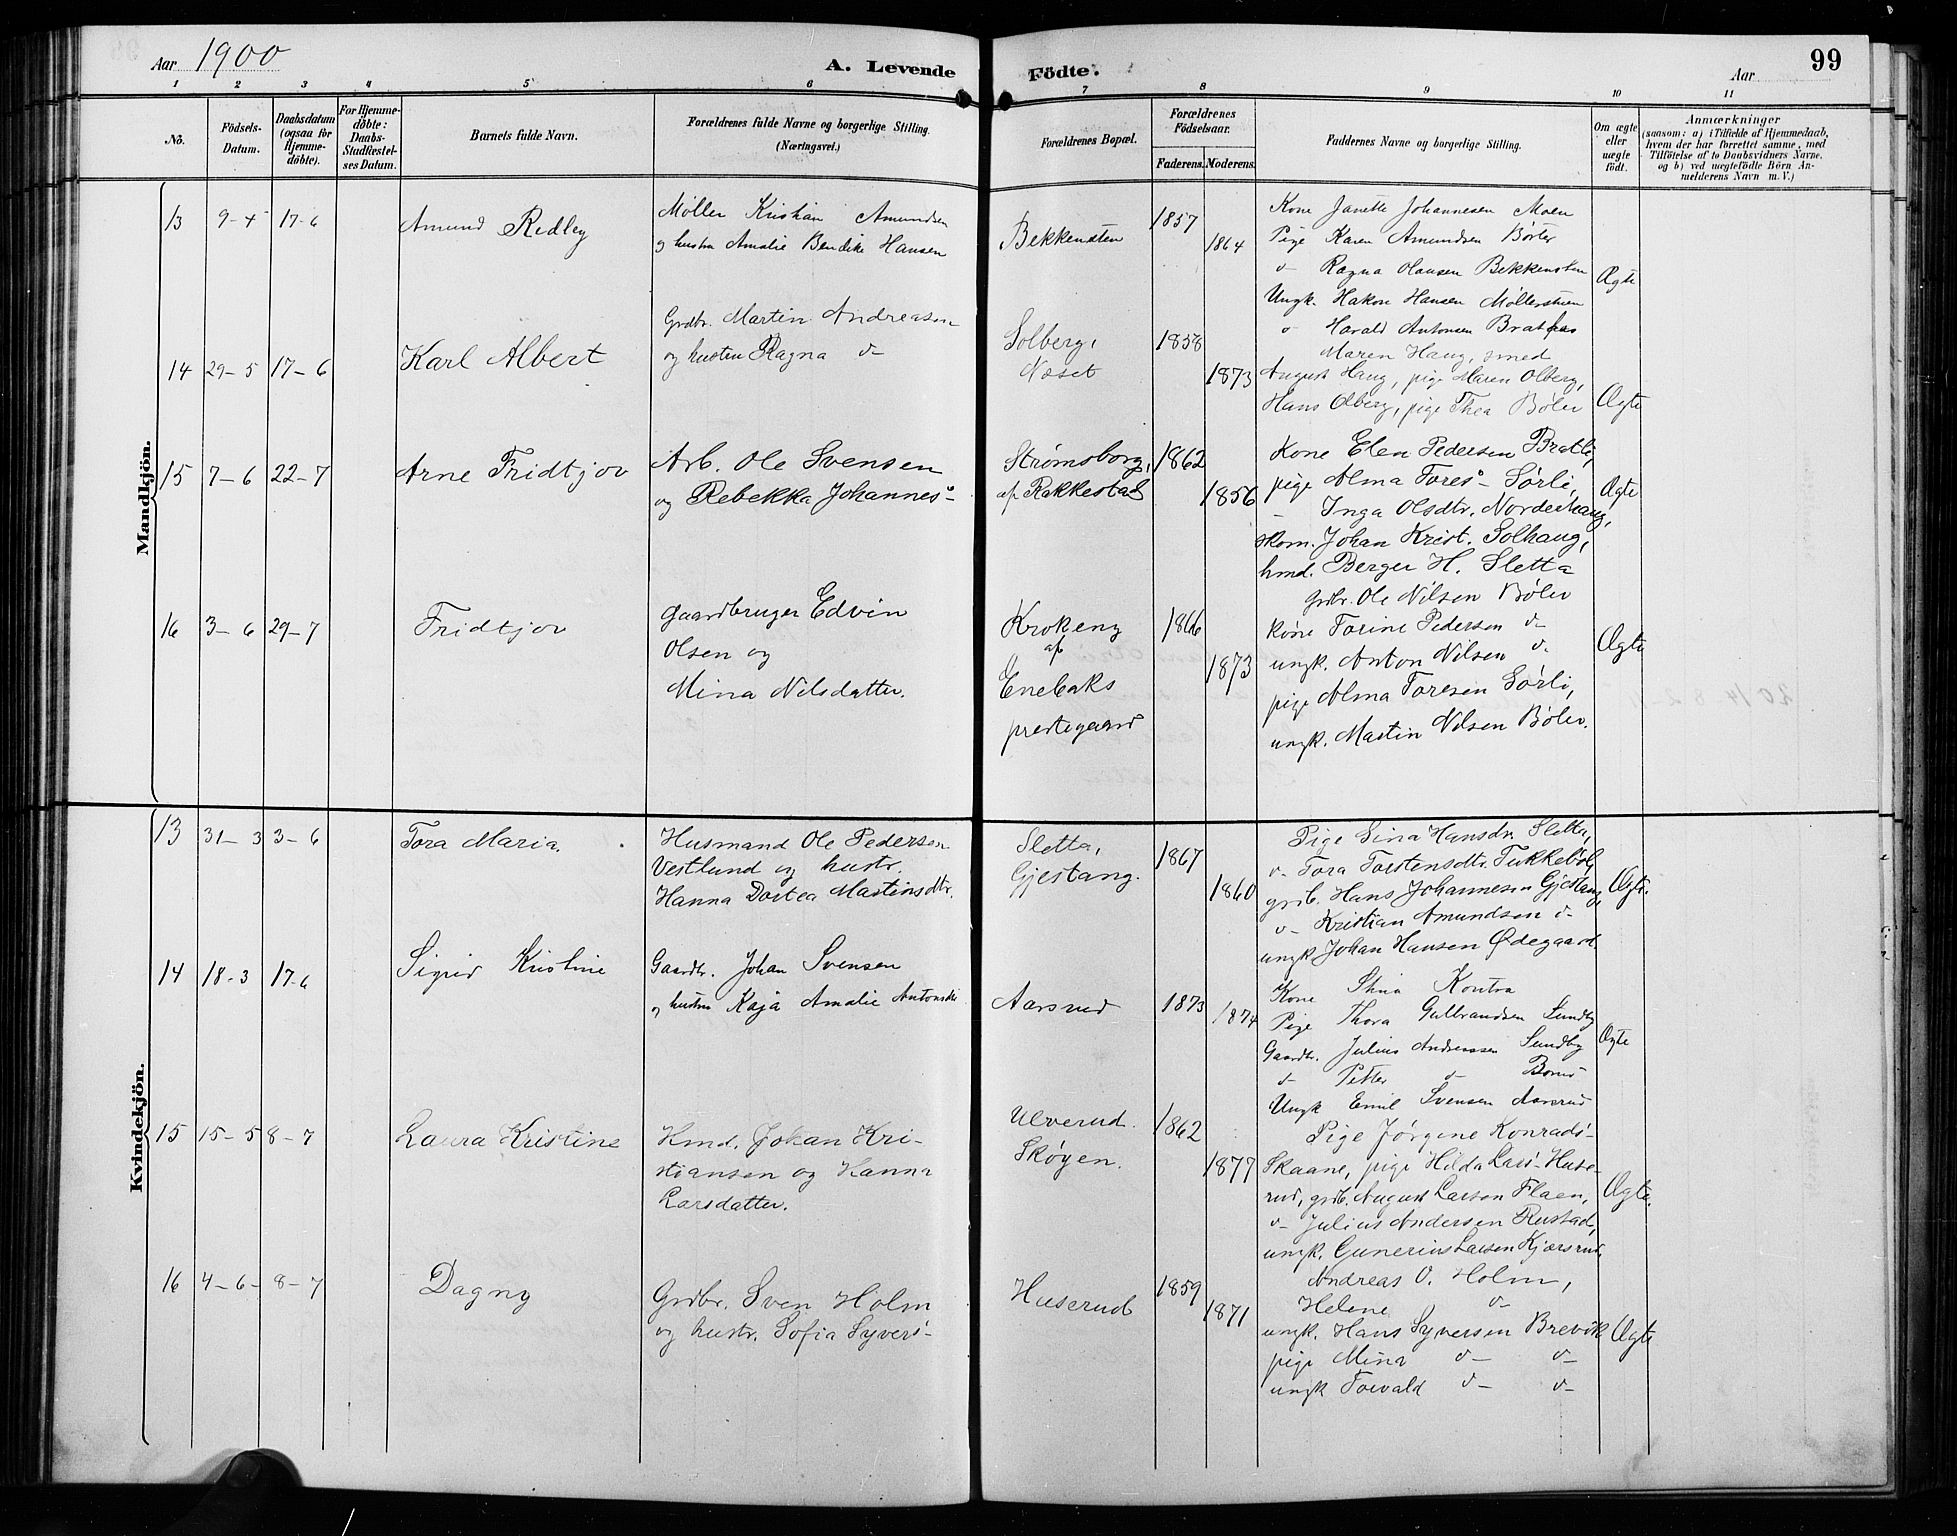 Aar 1900
A. Levende Födte.
Aar
99
1 2 3 4 5 6 7 8 9 10 11
No.
Födsels-Datum.
Daabsdatum (ogsaa for Hjemme-döbte).
For Hjemme-döbte: Daabs-Stadfæstel-ses Datum.
Barnets fulde Navn.
Forældrenes fulde Navne og borgerlige Stilling.
(Næringsvei.)
Forældrenes Bopæl.
Forældrenes Födselsaar.
Faderens. Moderens.
Faddernes Navne og borgerlige Stilling.
Om ægte eller uægte födt.
Anmærkninger
(saasom: a) i Tilfælde af Hjemmedaab,
hvem der har forrettet samme, med
Tilföielse af to Daabsvidners Navne,
og b) ved uægtefödte Börn An-
melderens Navn m. V.)
Mandkjön.
13 9-4 17-6 Amund Redley
Møller Kristian Amundsen
og hustru Amalie Bendike Hansen
Bekkensten 1857 1864
Kone Janette Johannesen Moen
Pige Karen Amundsen Børter
d- Ragna Olausen Bekkensten
Ungk. Hakon Hansen Møllerstuen
d- Harald Antonsen Bratfos
Ægte
14 29-5 17-6 Karl Albert
Grdbr. Martin Andreasen
og hustru Ragna d-
Solberg,
Næset
1858 1873
Maren Haug, smed
August Haug, pige Maren Olberg,
Hans Olberg, pige Thea Böler
Ægte
15 7-6 22-7 Arne Fridtjov
Arb. Ole Svensen
og Rebekka Johannes-
Strømsborg,
af Rakkestad
1862 1856
Kone Elen Pedersen Bratli,
pige Alma Tores- Sørli,
- Inga Olsdtr. Norderhaug,
skom. Johan Krist. Solhaug,
hmd. Berger H. Sletta
Ægte
16 3-6 29-7 Fridtjov
Gaardbruger Edvin
Olsen og
Mina Nilsdatter.
Krokeng
af
Enebaks
prestegaard
1866 1873
Grdbr. Ole Nilsen Bøler
kone Torine Pedersen d-
ungk. Anton Nilsen d-
pige Alma Toresen Sørli,
ungk. Martin Nilsen Bøler.
Ægte
Kvindekjön.
13 31-3 3-6 Tora Maria.
Husmand Ole Pedersen
Vestlund og hustr.
Hanna Dortea Martinsdtr.
Sletta,
Gjestang.
1867 1860
Pige Lina Hansdr. Sletta,
d- Tora Torstensdtr. Tukkebøl,
grdb. Hans Johannesen Gjestang,
d- Kristian Amundsen d-
ungk Johan Hansen Ødegaard
Ægte.
14 18-3 17-6 Sigrid Kristine
Gaardbr. Johan Svensen
og hustru Kaja Amalie Antonsdtr
Aarsrud 1873 1874
Kone Stina Kontra
Pige Thora Gulbrandsen Sundby
Gaardbr. Julius Andreassen Sundby
d- Petter d- Borud
Ungk Emil Svensen Aarsrud
Ægte
15 15-5 8-7 Laura Kristine
Hmd. Johan Kri-
stiansen og Hanna
Larsdatter.
Ulverud.
Skøyen.
1862 1877
Pige Jørgine Konrads-
Skaane, pige Hilda Lars- Huse-
rud, grdb. August Larsen Flaen,
d- Julius Andersen Rustad,
ungk. Gunerius Larsen Kjærsrud.
Ægte.
16 4-6- 8-7 Dagny
Grdbr. Sven Holm
og hustr. Sofia Syvers-
Huserud 1859 1871
Andreas O. Holm,
Helene d-
ungk. Hans Syversen Brevik
pige Mina d- d-
ungk Torvald d- d-
Ægte